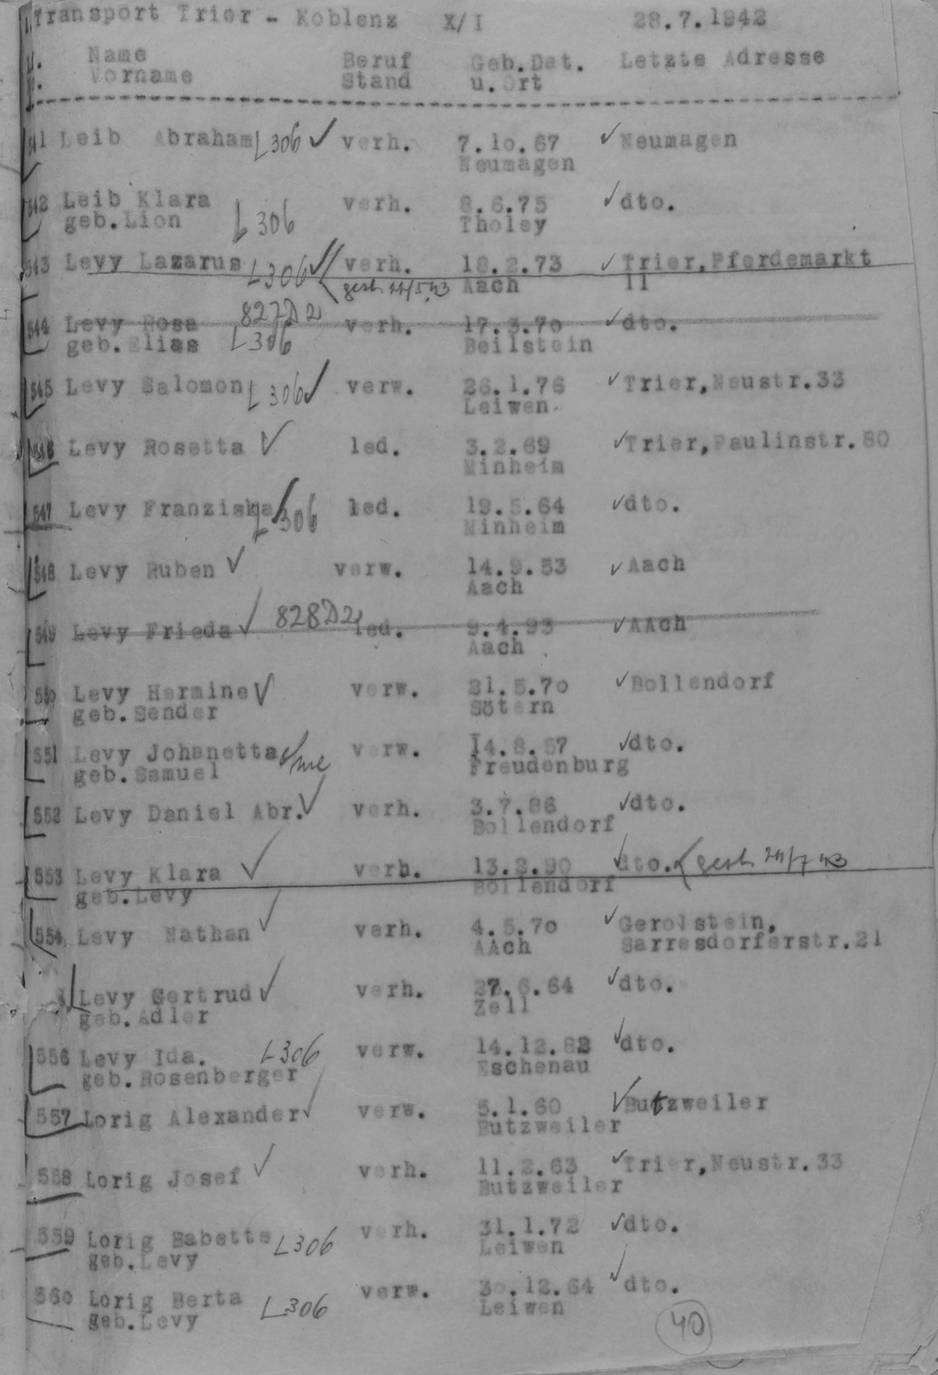 Transport Trier - Koblenz X/I 28.7.1942
Name Beruf Geb.Dat. Letzte Adresse
Vorname Stand u.Ort
541 Leib Abraham L306 ✓ verh. 7.10.67 ✓ Neumagen
Neumagen
542 Leib Klara verh. 8.6.75 ✓ dto.
geb.Lion L306 Tholey
543 Levy Lazarus L306 ✓ verh. 18.2.73 ✓ Trier,Pferdemarkt
gest. Aach 11
544 Levy Rosa 827D2 verh. 17.3.70 ✓ dto.
geb.Elias L306 Beilstein
545 Levy Salomon L306 ✓ verw. 26.1.76 ✓ Trier,Neustr.33
Leiwen.
546 Levy Rosetta ✓ led. 3.2.69 ✓ Trier,Paulinstr.80
Minheim
547 Levy Franziska L306 led. 19.5.64 ✓ dto.
Minheim
548 Levy Ruben ✓ verw. 14.9.53 ✓ Aach
Aach
549 Levy Frieda ✓ 828D2 led. 9.4.93 ✓ AAch
Aach
550 Levy Hermine ✓ verw. 21.5.70 ✓ Bollendorf
geb.Sender Sötern
551 Levy Johanetta verw. 14.8.67 ✓ dto.
geb.Samuel Freudenburg
552 Levy Daniel Abr. ✓ verh. 3.7.86 ✓ dto.
Bollendorf
553 Levy Klara ✓ verh. 13.2.90 dto. gest. 24/7 43
geb.Levy Bollendorf
554 Levy Nathan ✓ verh. 4.5.70 ✓ Gerolstein,
AAch Sarresdorferstr.21
Levy Gertrud ✓ verh. 27.6.64 ✓ dto.
geb.Adler Zell
556 Levy Ida. L306 verw. 14.12.82 ✓ dto.
geb.Rosenberger Eschenau
557 Lorig Alexander ✓ verw. 5.1.60 ✓ Butzweiler
Butzweiler
558 Lorig Josef ✓ verh. 11.2.63 ✓ Trier,Neustr.33
Butzweiler
559 Lorig Babette L306 verh. 31.1.72 ✓ dto.
geb.Levy Leiwen
560 Lorig Berta L306 verw. 30.12.64 ✓ dto.
geb.Levy Leiwen
40